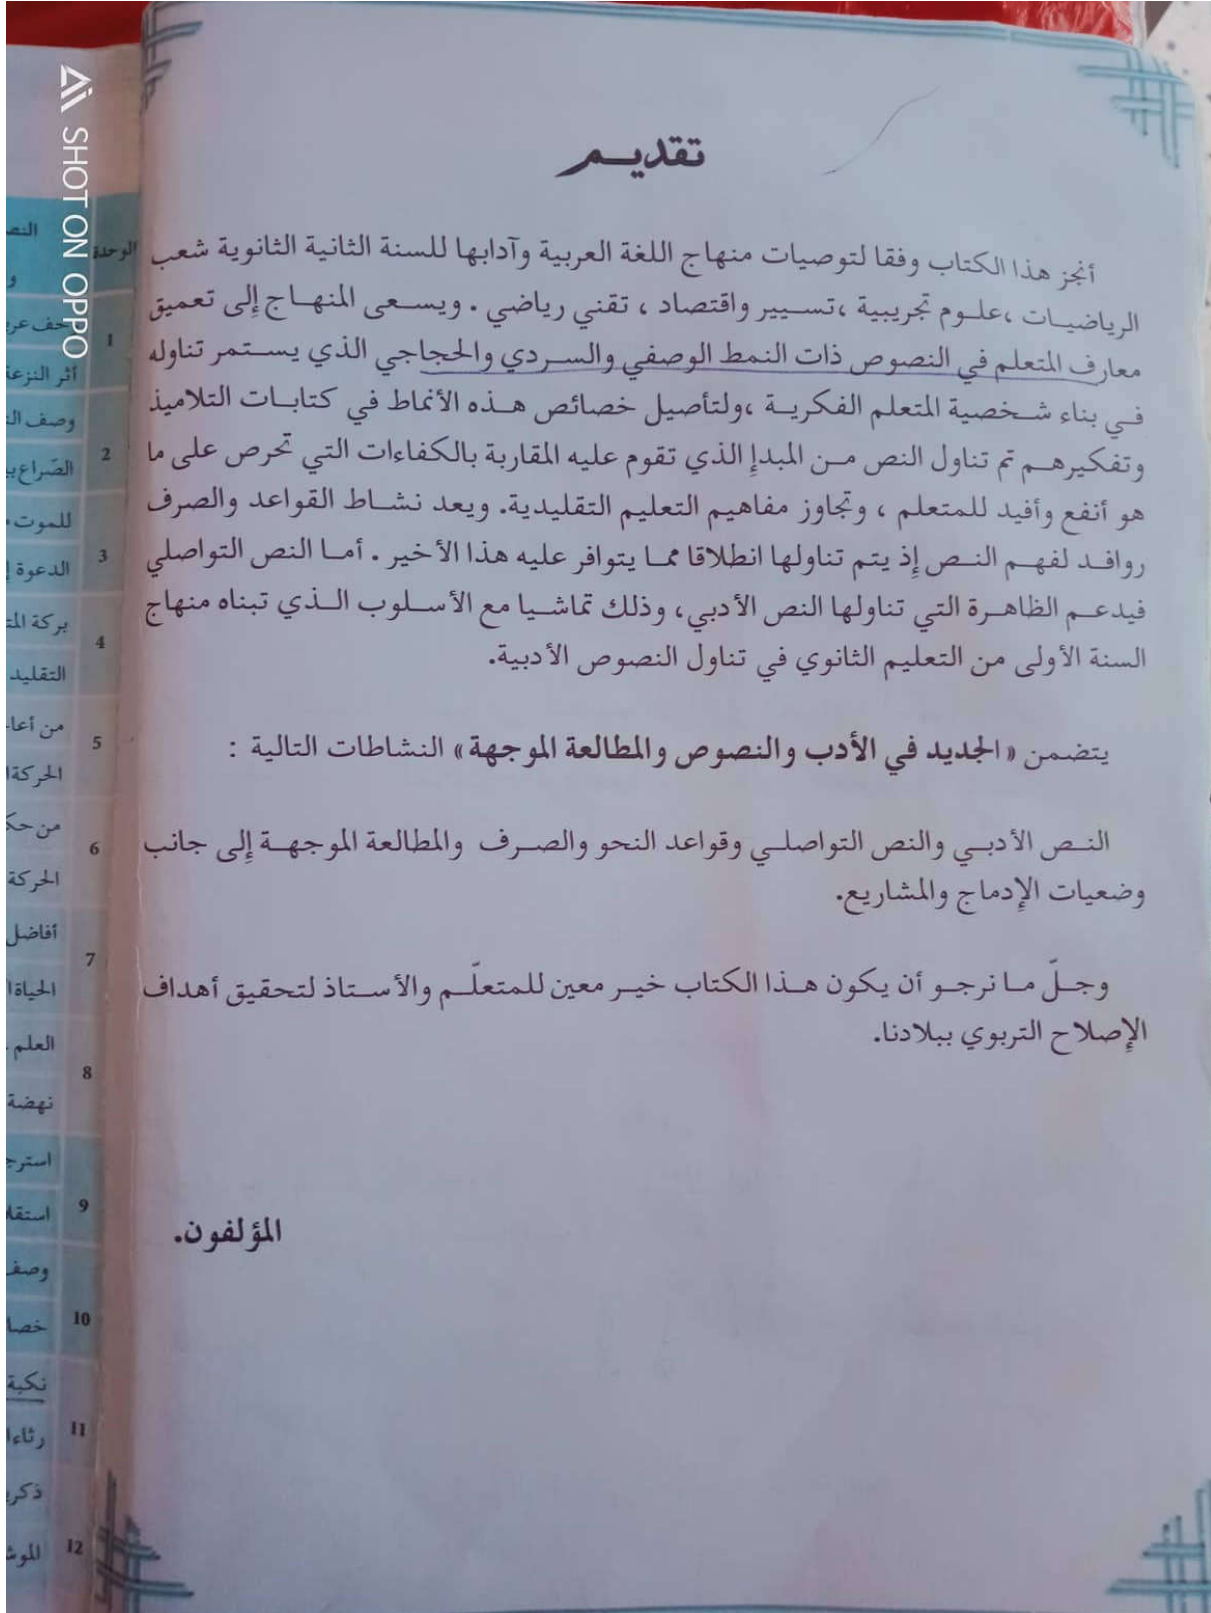 تقديم
أنجز هذا الكتاب وفقا لتوصيات منهاج اللغة العربية وآدابها للسنة الثانية الثانوية شعب
الرياضيات ،علوم تجريبية ،تسيير واقتصاد ، تقني رياضي . ويسعى المنهاج إلى تعميق
معارف المتعلم في النصوص ذات النمط الوصفي والسردي والحجاجي الذي يستمر تناوله
في بناء شخصية المتعلم الفكرية ،ولتأصيل خصائص هذه الأنماط في كتابات التلاميذ
وتفكيرهم تم تناول النص من المبدإ الذي تقوم عليه المقاربة بالكفاءات التي تحرص على ما
هو أنفع وأفيد للمتعلم ، وتجاوز مفاهيم التعليم التقليدية. ويعد نشاط القواعد والصرف
روافد لفهم النص إذ يتم تناولها انطلاقا مما يتوافر عليه هذا الأخير . أما النص التواصلي
فيدعم الظاهرة التي تناولها النص الأدبي، وذلك تماشيا مع الأسلوب الذي تبناه منهاج
السنة الأولى من التعليم الثانوي في تناول النصوص الأدبية.
يتضمن «الجديد في الأدب والنصوص والمطالعة الموجهة» النشاطات التالية :
النص الأدبي والنص التواصلي وقواعد النحو والصرف والمطالعة الموجهة إلى جانب
وضعيات الإدماج والمشاريع.
وجلّ ما نرجو أن يكون هذا الكتاب خير معين للمتعلّم والأستاذ لتحقيق أهداف
الإصلاح التربوي ببلادنا.
المؤلفون.
الوحدة
1
أثر
2
وصف
للموت
3
الدعوة
بركة
4
التقليد
من
5
6
الحركة
أفاضل
7
العلم
8
نهضة
9
10
وصف
نكبة
11
12
SHOT ON OPPO